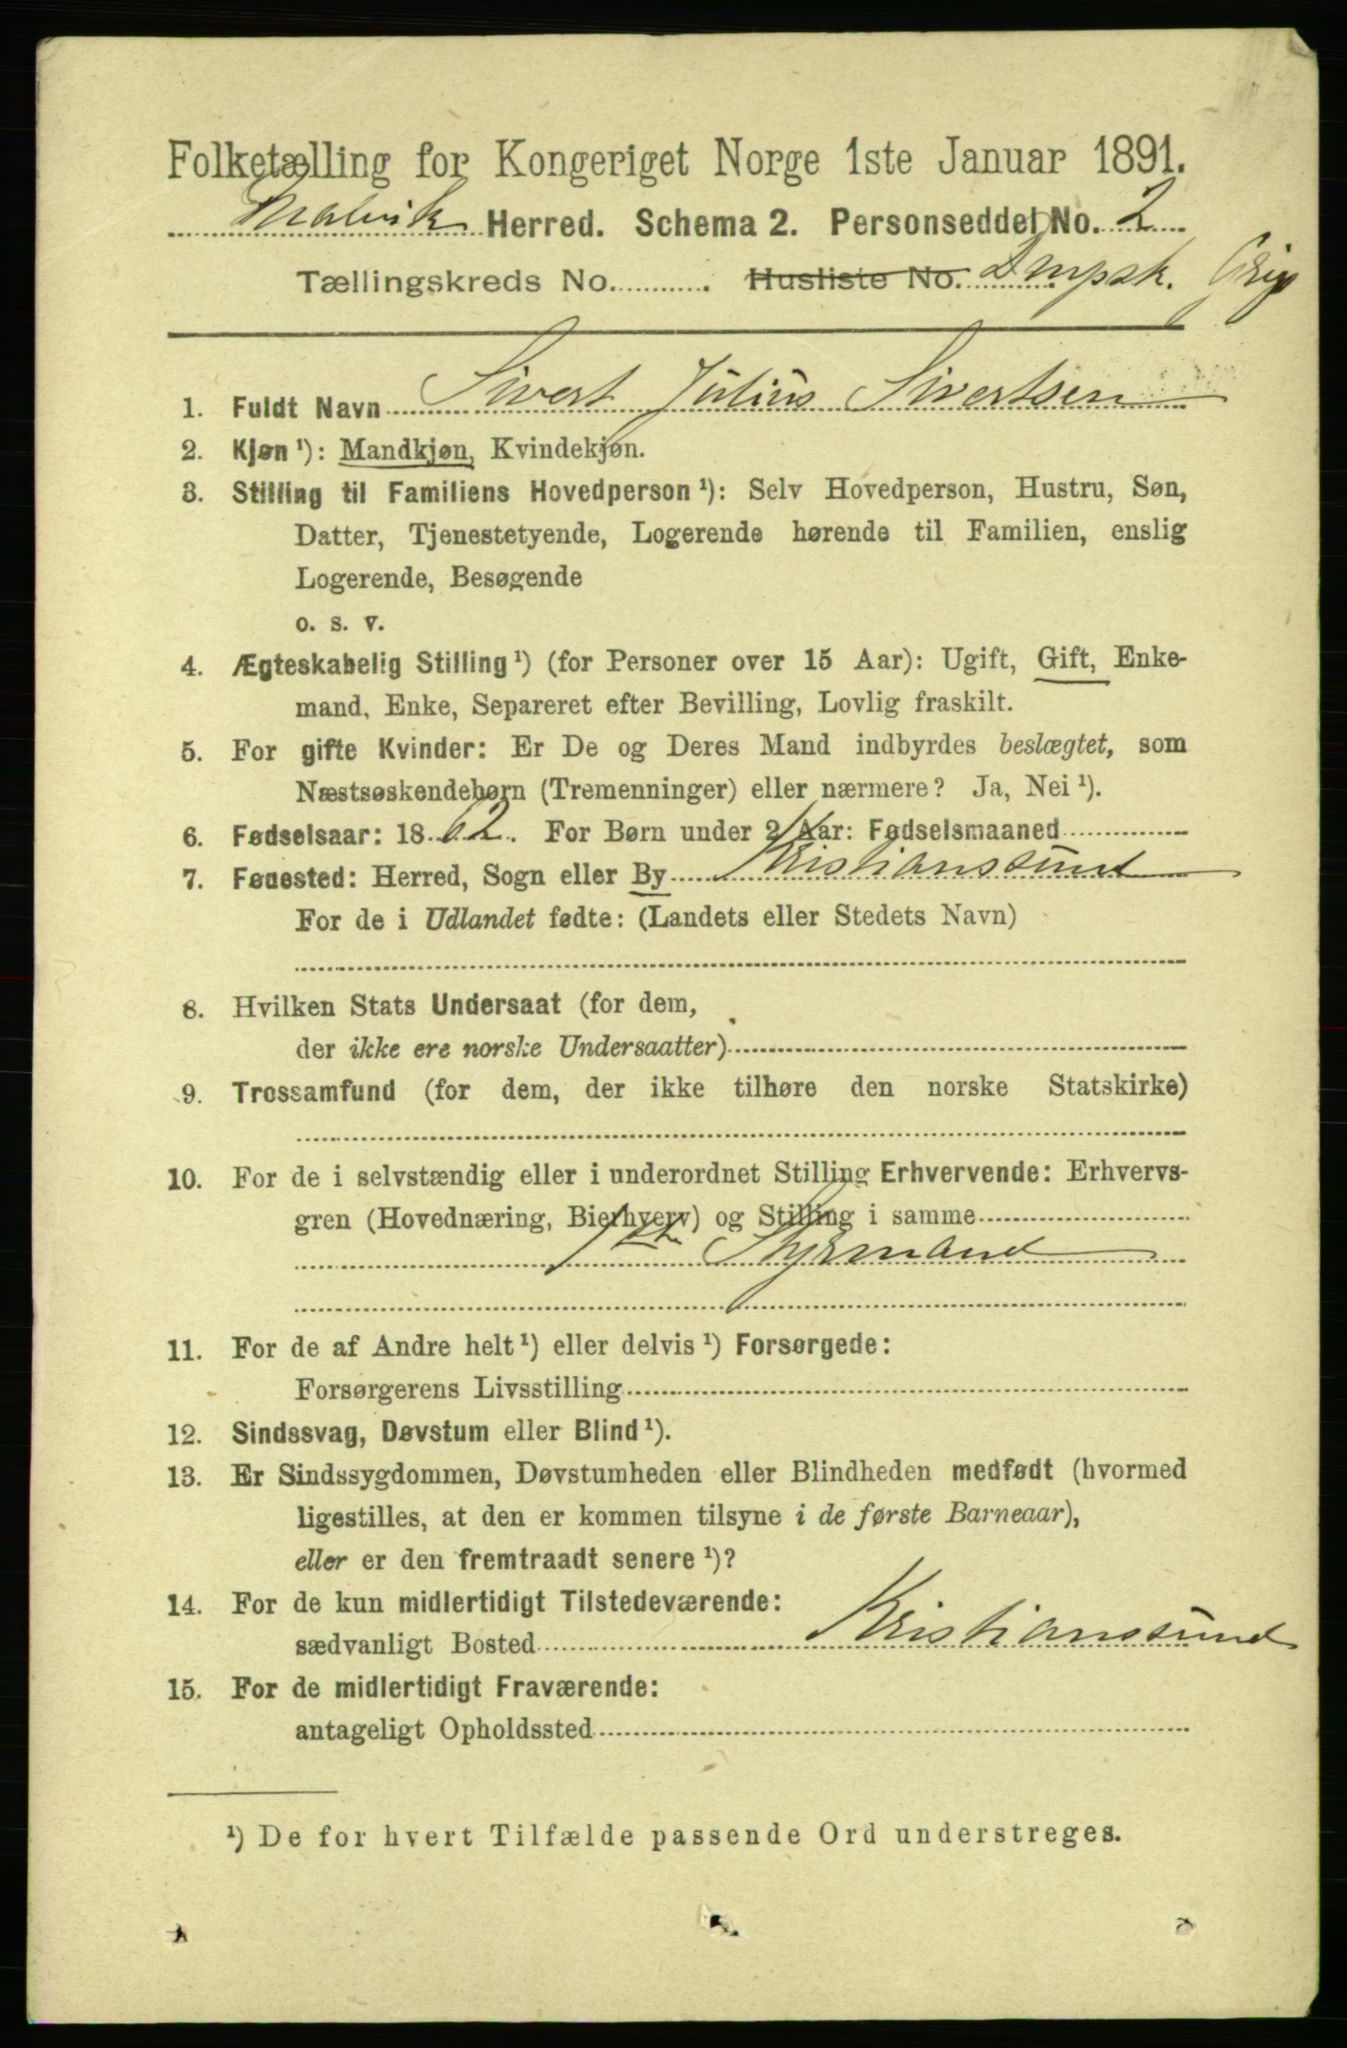 Folketælling for Kongeriget Norge 1ste Januar 1891.
Malvik Herred. Schema 2. Personseddel No. 2
Tællingskreds No. . Husliste No. Dmpsk. Grip
1. Fuldt Navn Sivert Julius Sivertsen
2. Kjøn ¹): Mandkjøn, Kvindekjøn.
3. Stilling til Familiens Hovedperson ¹): Selv Hovedperson, Hustru, Søn,
Datter, Tjenestetyende, Logerende hørende til Familien, enslig
Logerende, Besøgende
o. s. v.
4. Ægteskabelig Stilling ¹) (for Personer over 15 Aar): Ugift, Gift, Enke-
mand, Enke, Separeret efter Bevilling, Lovlig fraskilt.
5. For gifte Kvinder: Er De og Deres Mand indbyrdes beslægtet, som
Næstsøskendebørn (Tremenninger) eller nærmere? Ja, Nei ¹).
6. Fødselsaar: 1862. For Børn under 2 Aar: Fødselsmaaned
7. Fødested: Herred, Sogn eller By Kristianssund
For de i Udlandet fødte: (Landets eller Stedets Navn)
8. Hvilken Stats Undersaat (for dem,
der ikke ere norske Undersaatter)
9. Trossamfund (for dem, der ikke tilhøre den norske Statskirke)
10. For de i selvstændig eller i underordnet Stilling Erhvervende: Erhvervs-
gren (Hovednæring, Bierhverv) og Stilling i samme
1ste Styrmand
11. For de af Andre helt ¹) eller delvis ¹) Forsørgede:
Forsørgerens Livsstilling
12. Sindssvag, Døvstum eller Blind ¹).
13. Er Sindssygdommen, Døvstumheden eller Blindheden medfødt (hvormed
ligestilles, at den er kommen tilsyne i de første Barneaar),
eller er den fremtraadt senere ¹)?
14. For de kun midlertidigt Tilstedeværende:
sædvanligt Bosted Kristianssund
15. For de midlertidigt Fraværende:
antageligt Opholdssted
¹) De for hvert Tilfælde passende Ord understreges.